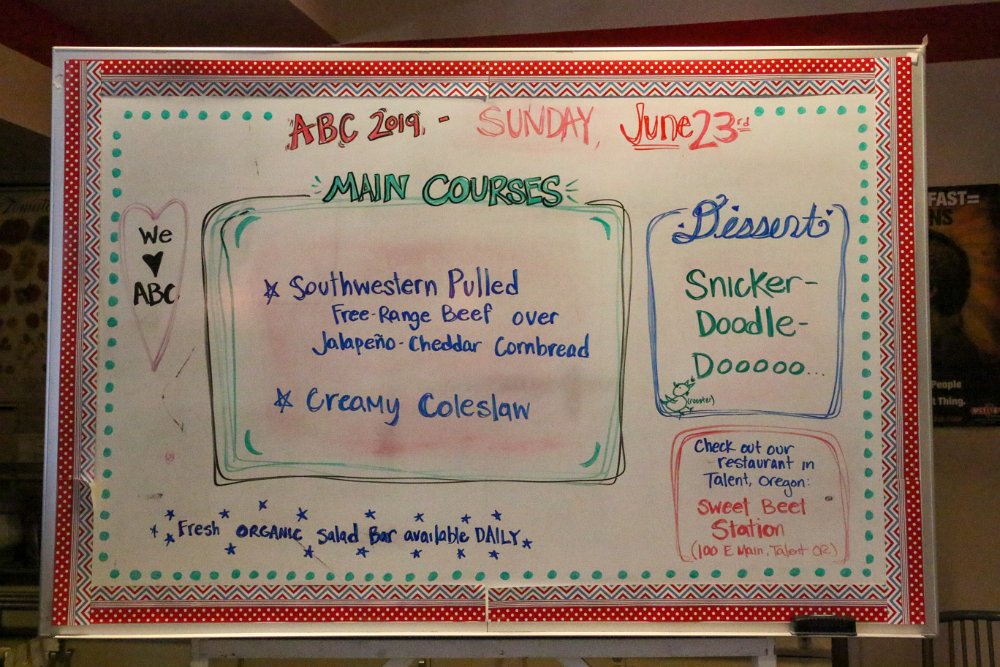 ABC 2019 - SUNDAY, June 23rd
MAIN COURSES
We
♥
ABC
☆ Southwestern Pulled
Free-Range Beef over
Jalapeño-Cheddar Cornbread
☆ Creamy Coleslaw
Dessert
Snicker-
Doodle-
Dooooo...
(rooster)
Check out our
restaurant in
Talent, Oregon:
Sweet Beet
Station
(100 E Main, Talent OR)
Fresh ORGANIC Salad Bar available DAILY
FAST=
People
Thing.